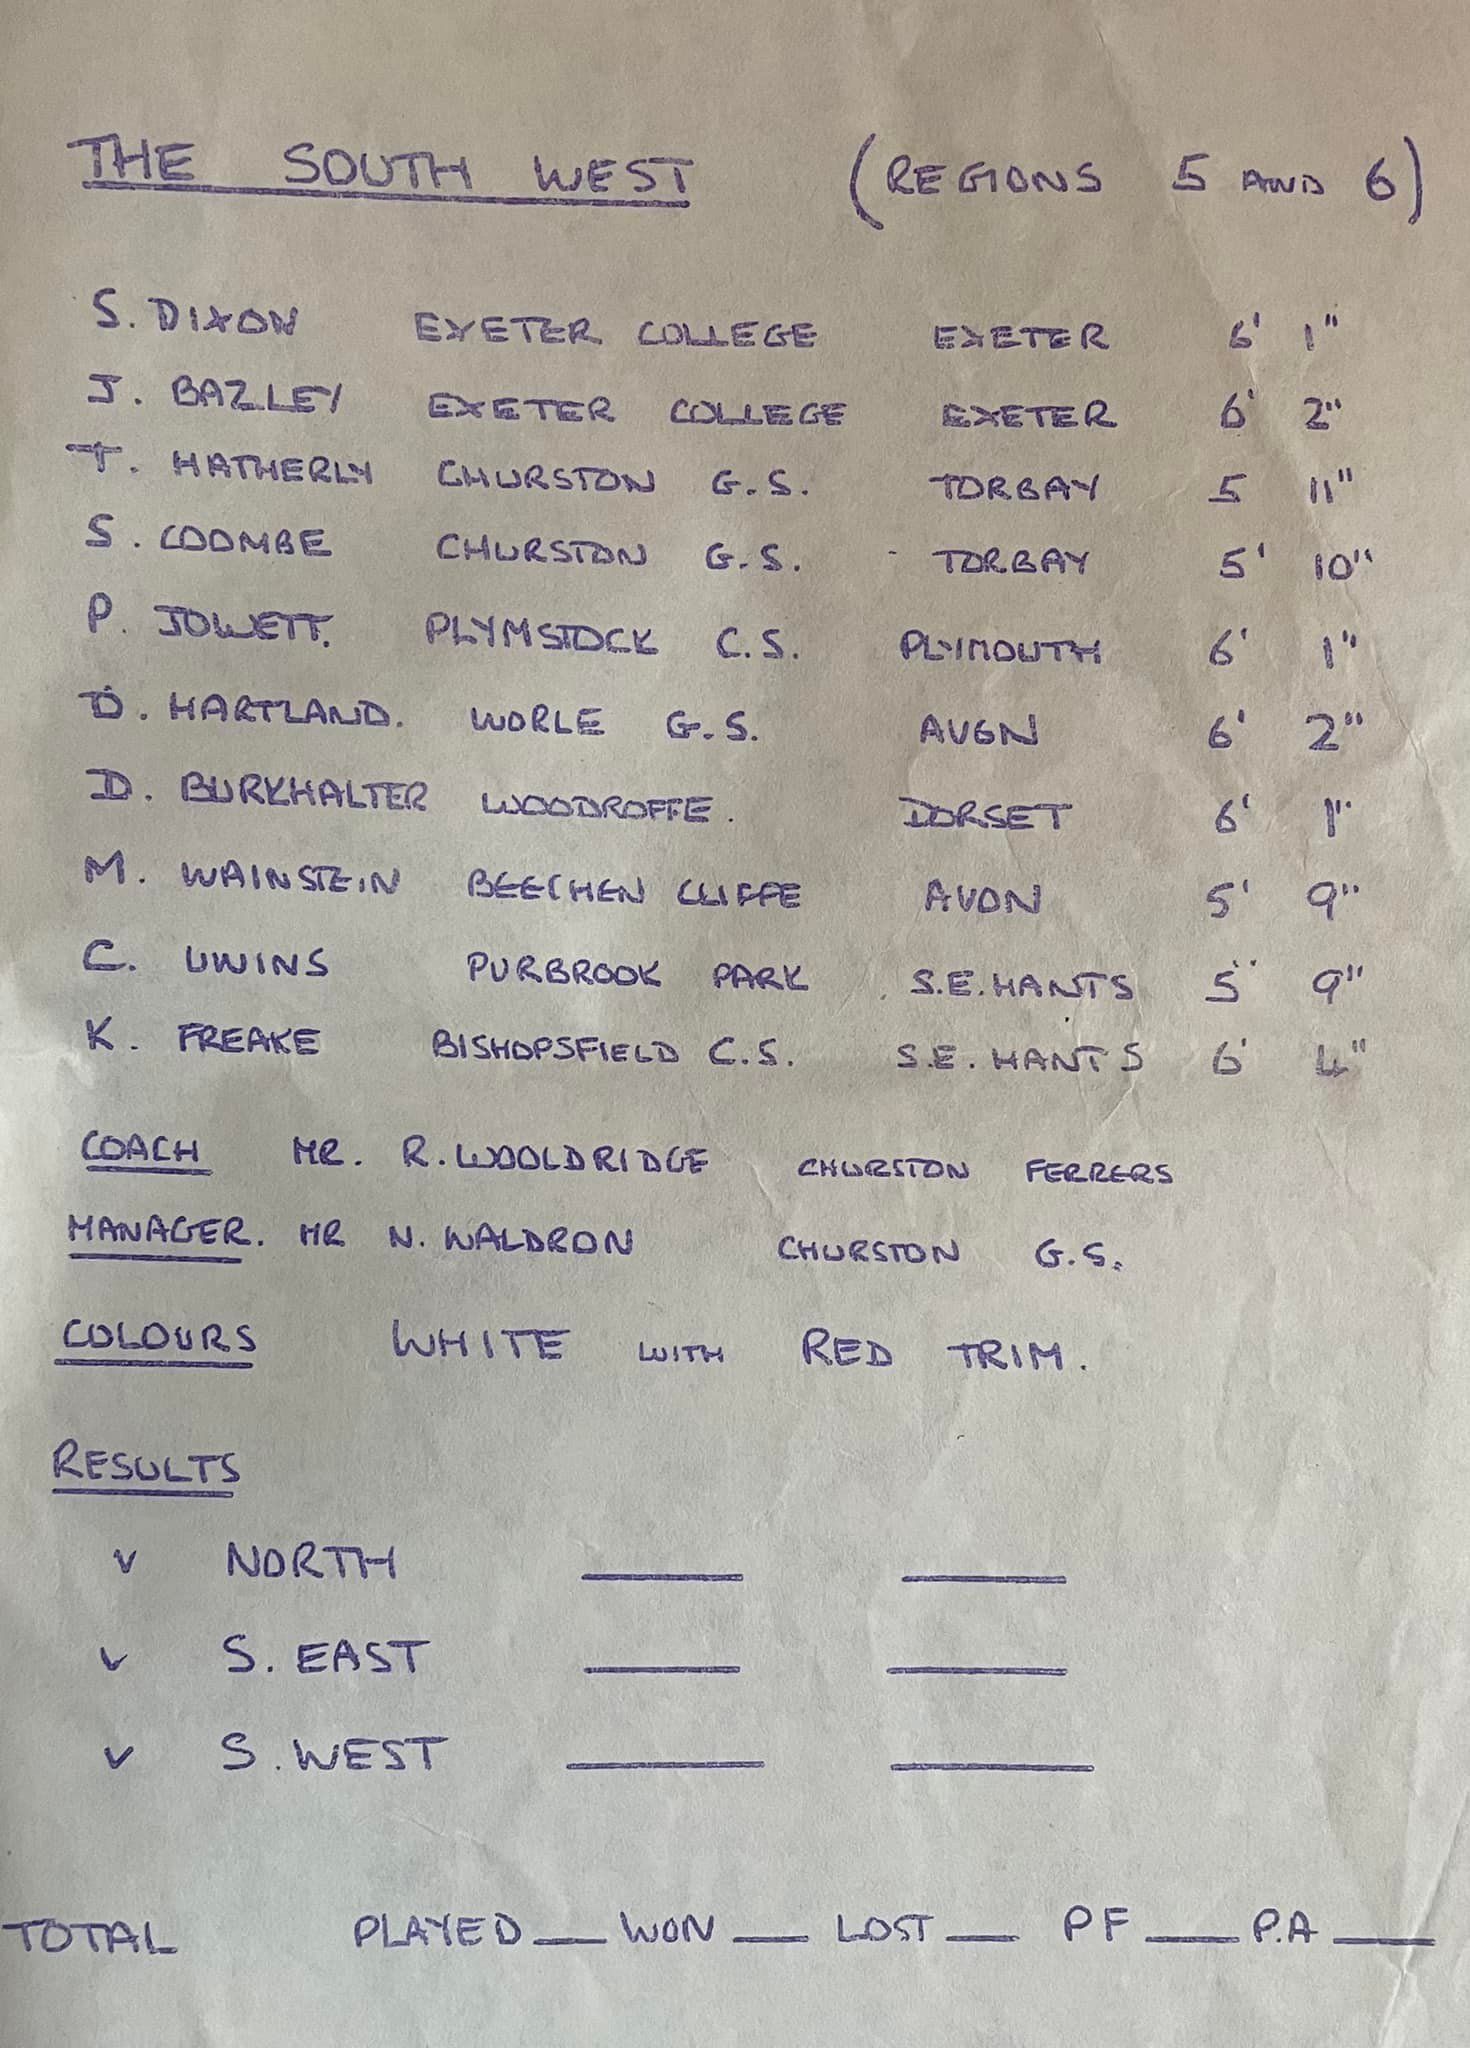 THE SOUTH WEST (REGIONS 5 AND 6)
S. DIXON EXETER COLLEGE EXETER 6' 1"
J. BAZLEY EXETER COLLEGE EXETER 6' 2"
T. HATHERLY CHURSTON G.S. TORBAY 5 11"
S. COOMBE CHURSTON G.S. TORBAY 5' 10"
P. JOWETT. PLYMSTOCK C.S. PLYMOUTH 6' 1"
D. HARTLAND. WORLE G.S. AVON 6' 2"
D. BURKHALTER WOODROFFE. DORSET 6' 1"
M. WAINSTEIN BEECHEN CLIFFE AVON 5' 9"
C. UWINS PURBROOK PARK S.E. HANTS 5" 9"
K. FREAKE BISHOPSFIELD C.S. S.E. HANTS 6' 4"
COACH MR. R. WOOLDRIDGE CHURSTON FERRERS
MANAGER. MR N. WALDRON CHURSTON G.S.
COLOURS WHITE WITH RED TRIM.
RESULTS
V NORTH ____ ____
V S. EAST ____ ____
V S. WEST ____ ____
TOTAL PLAYED __ WON __ LOST __ PF __ P.A __